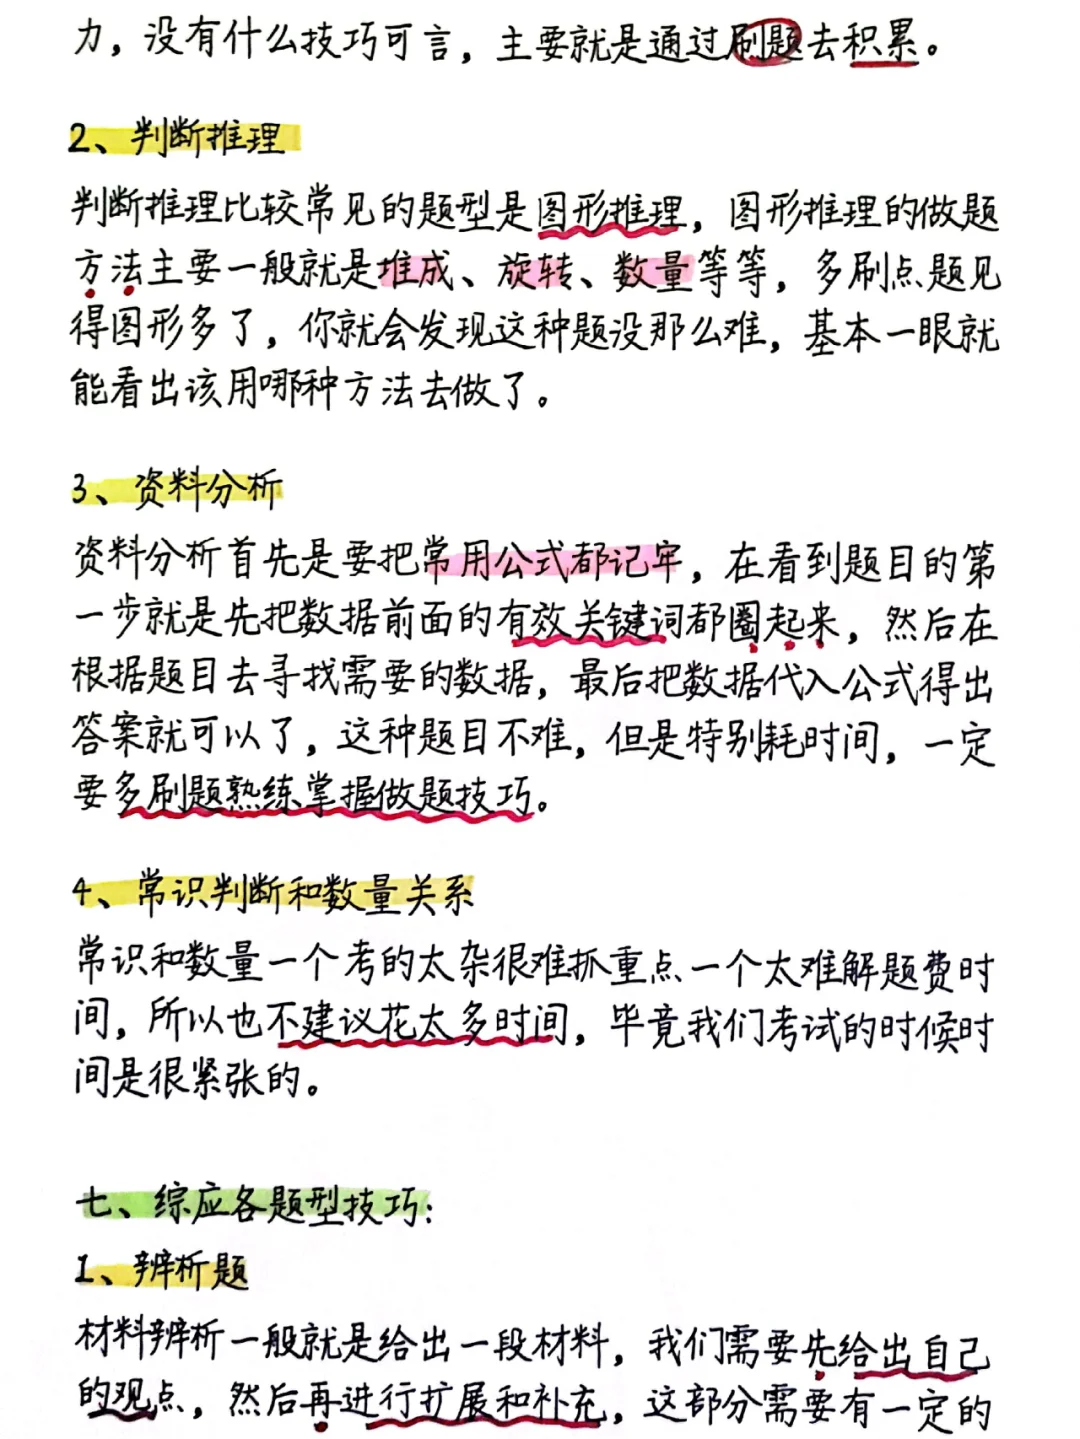 力，没有什么技巧可言，主要就是通过刷题去积累。
2、判断推理
判断推理比较常见的题型是图形推理，图形推理的做题
方法主要一般就是堆成、旋转、数量等等，多刷点题见
得图形多了，你就会发现这种题没那么难，基本一眼就
能看出该用哪种方法去做了。
3、资料分析
资料分析首先是要把常用公式都记牢，在看到题目的第
一步就是先把数据前面的有效关键词都圈起来，然后在
根据题目去寻找需要的数据，最后把数据代入公式得出
答案就可以了，这种题目不难，但是特别耗时间，一定
要多刷题熟练掌握做题技巧。
4、常识判断和数量关系
常识和数量一个考的太杂很难抓重点一个太难解题费时
间，所以也不建议花太多时间，毕竟我们考试的时候时
间是很紧张的。
七、综应各题型技巧：
1、辨析题
材料辨析一般就是给出一段材料，我们需要先给出自己
的观点，然后再进行扩展和补充，这部分需要有一定的